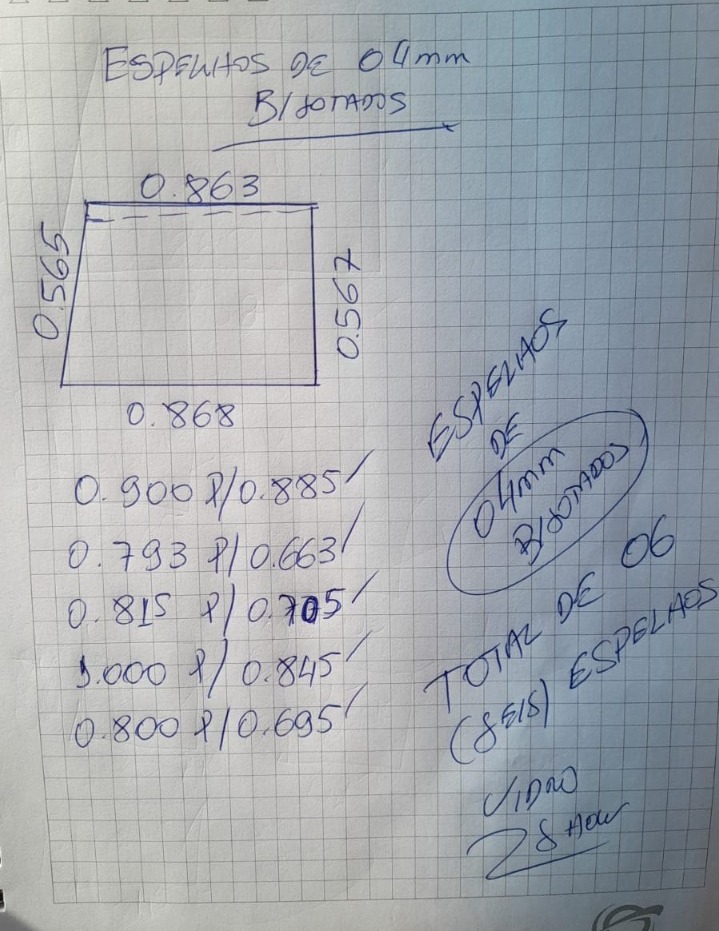 ESPELHOS DE 04mm
BISOTADOS
0.863
0.565
0.567
0.868
0.900 P/ 0.885
0.793 P/ 0.663
0.815 P/ 0.705
1.000 P/ 0.845
0.800 P/ 0.695
ESPELHOS
DE
04mm
BISOTADOS
TOTAL DE 06
(SEIS) ESPELHOS
VIDRO